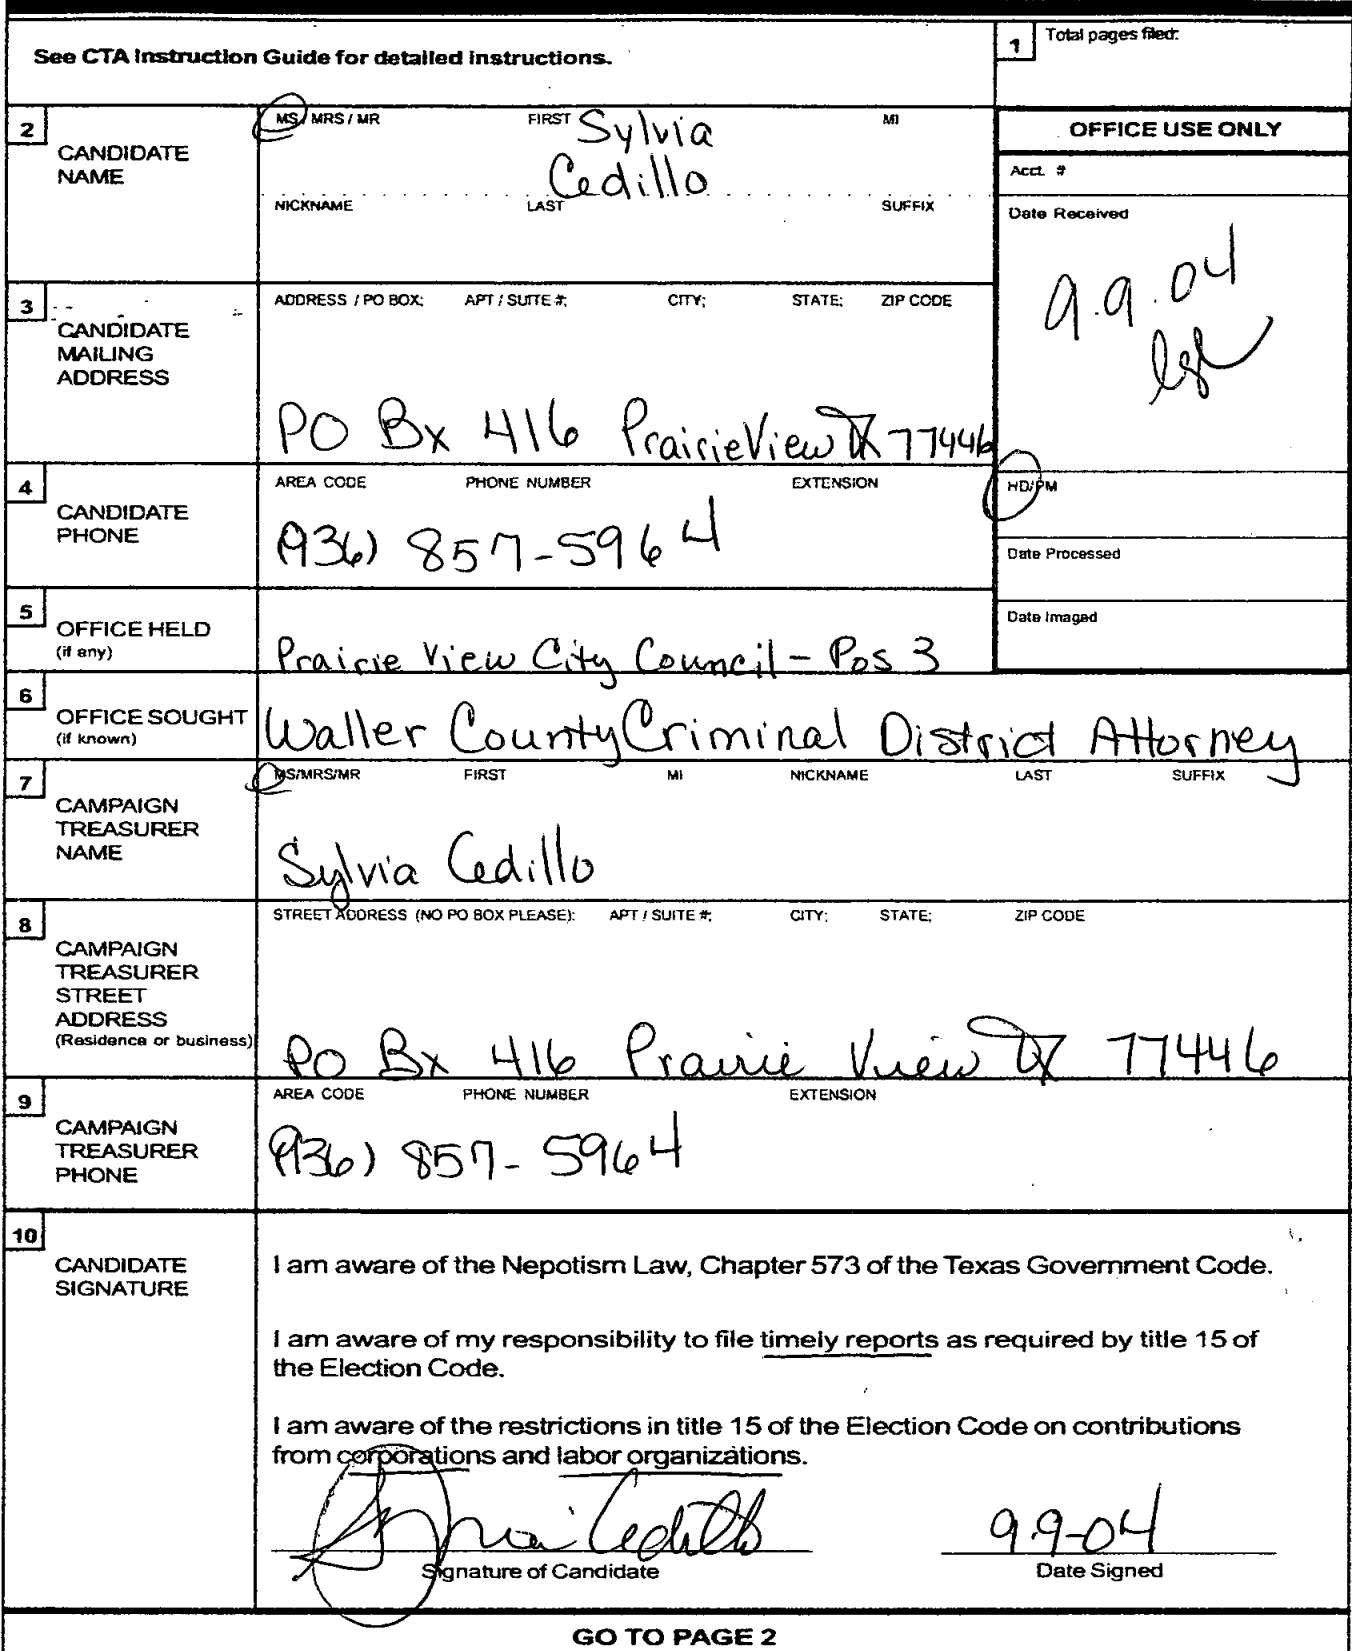 See CTA Instruction Guide for detailed instructions.
1 Total pages filed:
2 CANDIDATE NAME
MS / MRS / MR FIRST MI
Sylvia
Cedillo
NICKNAME LAST SUFFIX
OFFICE USE ONLY
Acct. #
Date Received
9.9.04
HD/PM
Date Processed
Date Imaged
3 CANDIDATE MAILING ADDRESS
ADDRESS / PO BOX; APT / SUITE #; CITY; STATE; ZIP CODE
PO Bx 416 Prairie View TX 77446
4 CANDIDATE PHONE
AREA CODE PHONE NUMBER EXTENSION
(936) 857-5964
5 OFFICE HELD (if any)
Prairie View City Council - Pos 3
6 OFFICE SOUGHT (if known)
Waller County Criminal District Attorney
7 CAMPAIGN TREASURER NAME
MS/MRS/MR FIRST MI NICKNAME LAST SUFFIX
Sylvia Cedillo
8 CAMPAIGN TREASURER STREET ADDRESS (Residence or business)
STREET ADDRESS (NO PO BOX PLEASE); APT / SUITE #; CITY; STATE; ZIP CODE
PO Bx 416 Prairie View TX 77446
9 CAMPAIGN TREASURER PHONE
AREA CODE PHONE NUMBER EXTENSION
(936) 857-5964
10 CANDIDATE SIGNATURE
I am aware of the Nepotism Law, Chapter 573 of the Texas Government Code.
I am aware of my responsibility to file timely reports as required by title 15 of
the Election Code.
I am aware of the restrictions in title 15 of the Election Code on contributions
from corporations and labor organizations.
Sylvia Cedillo 9-9-04
Signature of Candidate Date Signed
GO TO PAGE 2